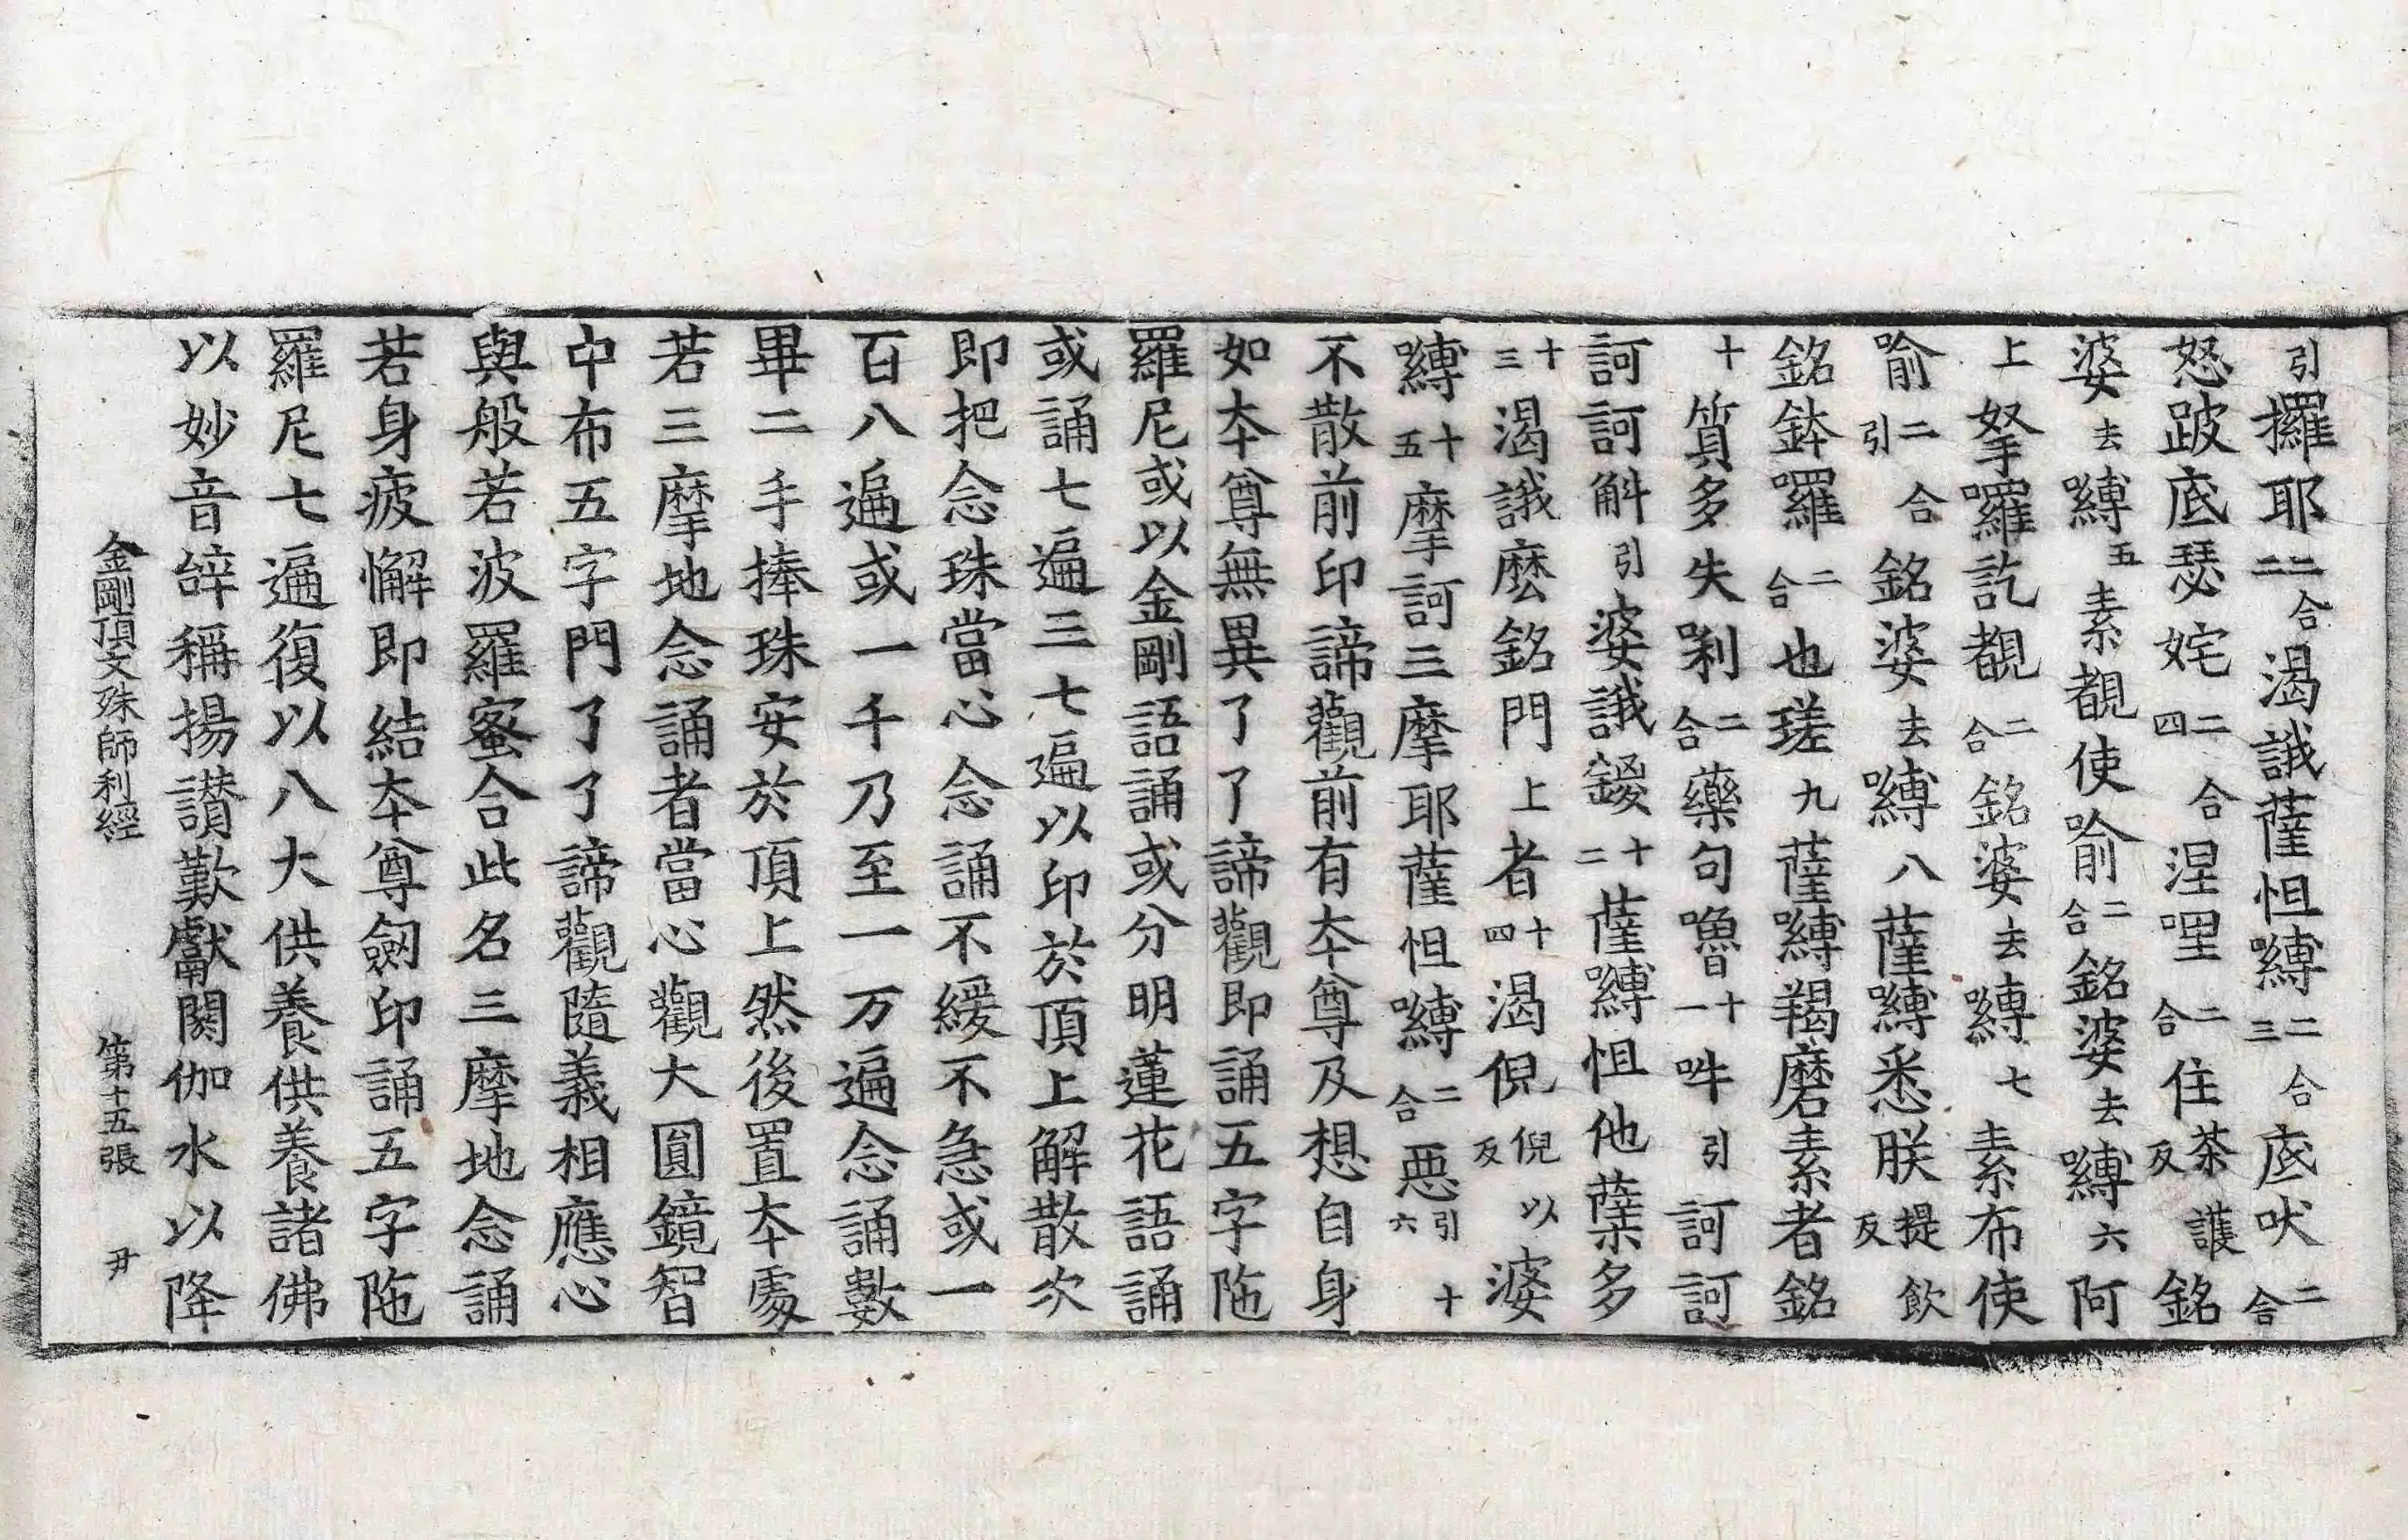 引攞耶二合二渴誐薩怛嚩二合三底吠二合
怒跛底瑟姹二合四涅哩二合住茶護反銘
婆去嚩五素覩使喻二合銘婆去嚩六阿
上努囉訖覩二合銘婆去嚩七素布使
喻二合引銘婆去嚩八薩嚩悉朕提飲反
銘鉢囉二合也瑳九薩嚩羯磨素者銘
十質多失唎二合藥句嚕十一吽引訶訶
訶訶斛引婆誐鍐十二薩嚩怛他蘖多
十三渴誐麽銘門上者十四渴倪倪以反婆
嚩十五摩訶三摩耶薩怛嚩二合惡引十六
不散前印諦觀前有本尊及想自身
如本尊無異了了諦觀即誦五字陁
羅尼或以金剛語誦或分明蓮花語誦
或誦七遍三七遍以印於頂上解散次
即把念珠當心念誦不緩不急或一
百八遍或一千乃至一万遍念誦數
畢二手捧珠安於頂上然後置本處
若三摩地念誦者當心觀大圓鏡智
中布五字門了了諦觀隨義相應心
與般若波羅蜜合此名三摩地念誦
若身疲懈即結本尊劔印誦五字陁
羅尼七遍復以八大供養供養諸佛
以妙音辝稱揚讃歎獻閼伽水以降
金剛頂文殊師利經　第十五張　尹